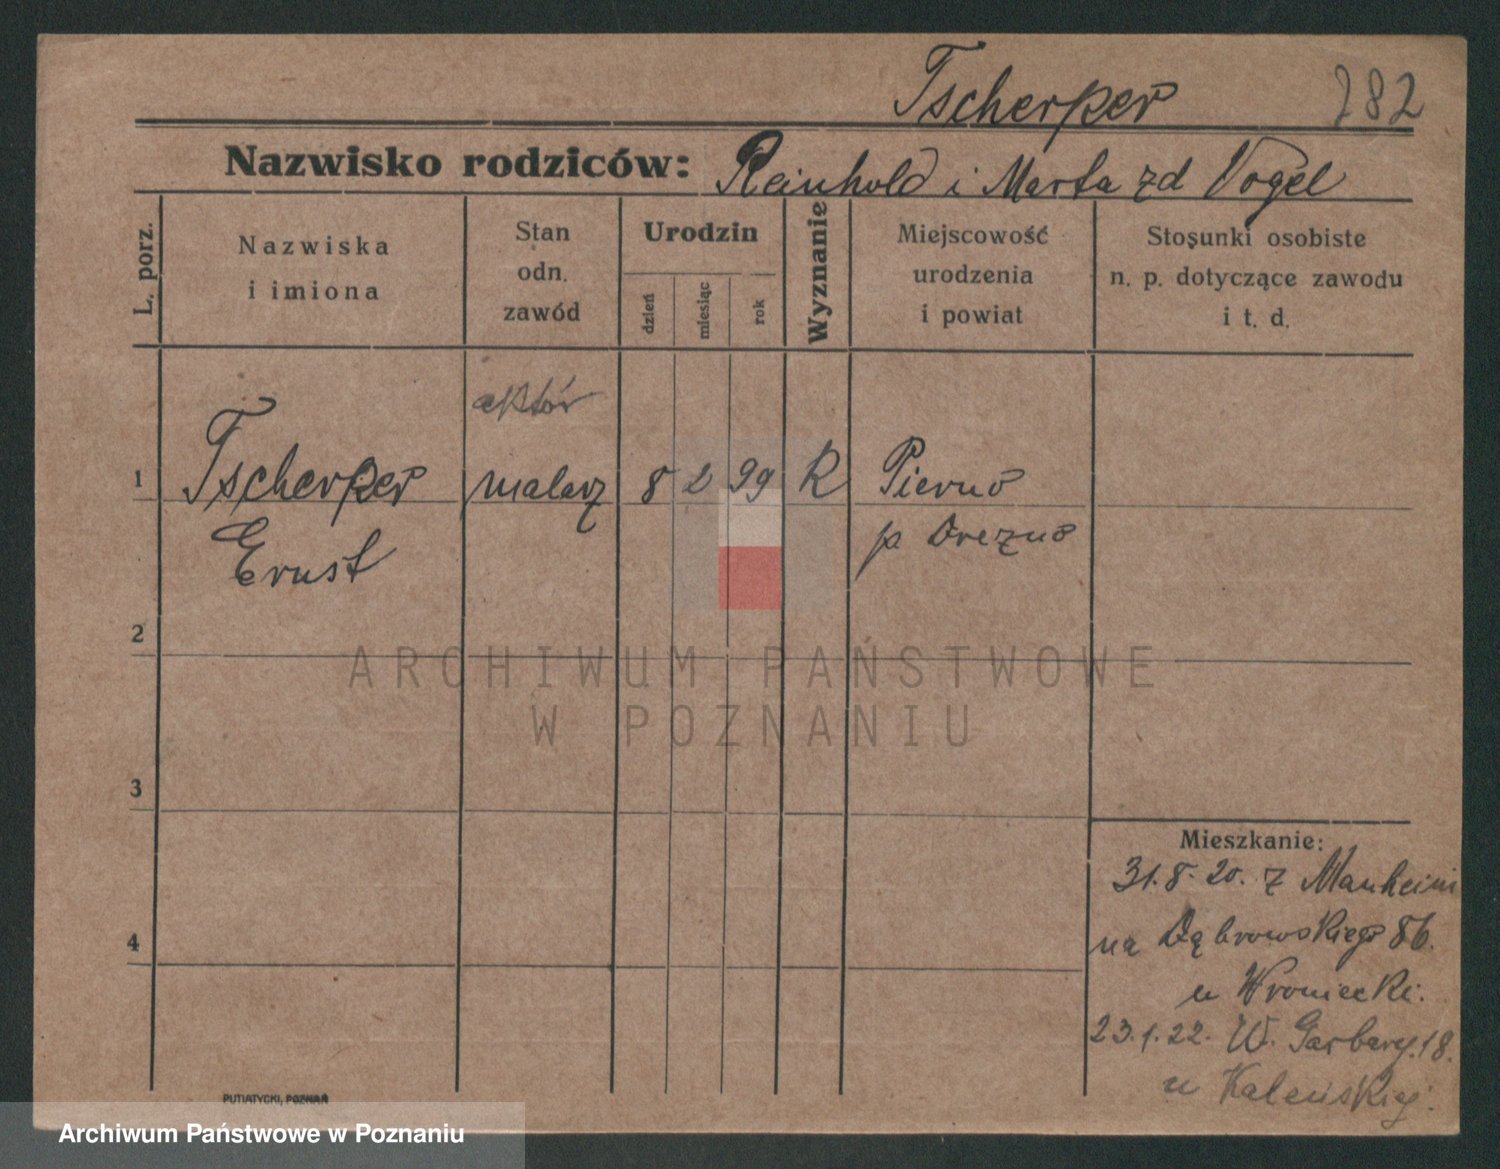 Tscherper 282
Nazwisko rodziców: Reinhold i Marta zd Vogel
L. porz.
Nazwiska
i imiona
Stan
odn.
zawód
Urodzin
dzień
miesiąc
rok
Wyznanie
Miejscowość
urodzenia
i powiat
Stosunki osobiste
n. p. dotyczące zawodu
i t. d.
aktór
1 Tscherper malarz 8 2 99 R Pierno
Ernst p Drezno
2
3
4
Mieszkanie:
31.8.20. z Manheim
na Dąbrowskiego 86.
u Wroniecki.
23.1.22. W. Garbary.18.
u Kaleńskiej.
PUTIATYCKI, POZNAŃ
ARCHIWUM PAŃSTWOWE
W POZNANIU
Archiwum Państwowe w Poznaniu